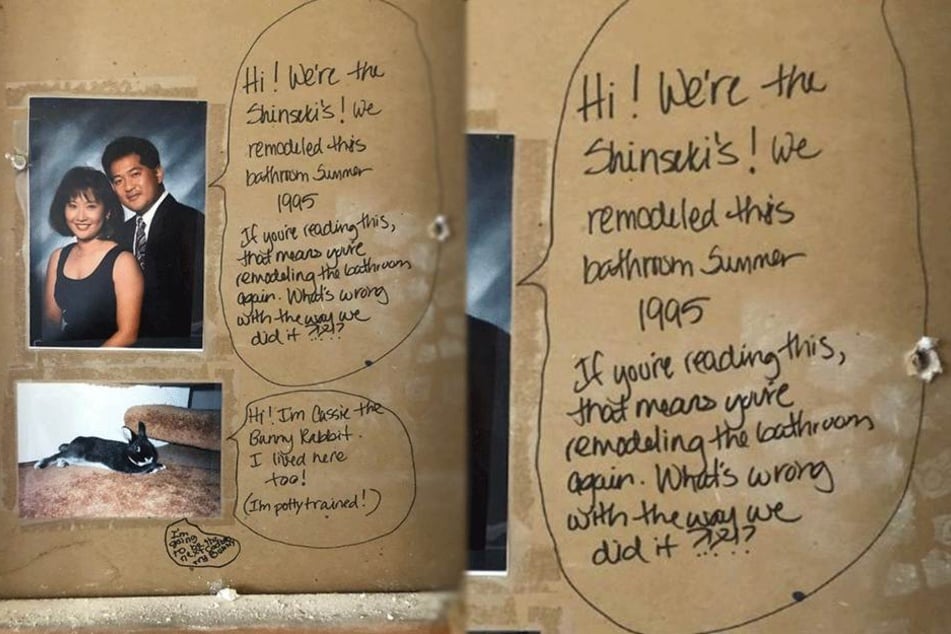 Hi! We're the
Shinseki's! We
remodeled this
bathroom Summer
1995
If you're reading this,
that means you're
remodeling the bathroom
again. What's wrong
with the way we
did it ?!?!?
Hi! I'm Cassie the
Bunny Rabbit.
I lived here
too!
(I'm potty trained!)
I'm
going
to be the
my Bunny
Hi! We're the
Shinseki's! We
remodeled this
bathroom Summer
1995
If you're reading this,
that means you're
remodeling the bathroom
again. What's wrong
with the way we
did it ?!?!?